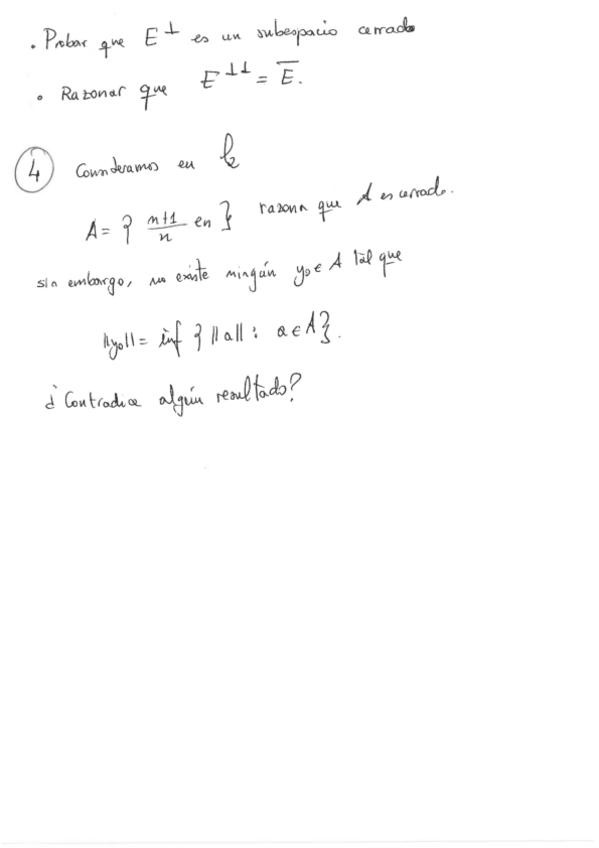 · Probar que E^⊥ es un subespacio cerrado
· Razonar que E^⊥⊥ = \overline{E}.
④ Consideramos en l_2
A = { \frac{n+1}{n} e_n } razona que A es cerrado.
sin embargo, no existe ningún y_0 ∈ A tal que
||y_0|| = inf { ||a|| : a ∈ A }.
¿Contradice algún resultado?